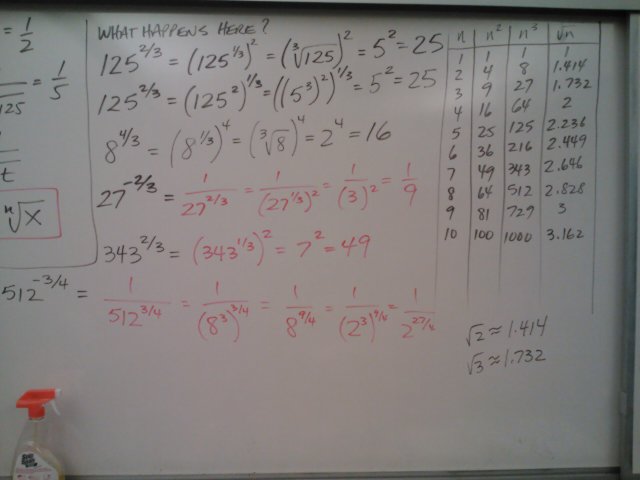 = 1/2
WHAT HAPPENS HERE?
125^(2/3) = (125^(1/3))^2 = (∛125)^2 = 5^2 = 25
= 1/5
125
125^(2/3) = (125^2)^(1/3) = ((5^3)^2)^(1/3) = 5^2 = 25
8^(4/3) = (8^(1/3))^4 = (∛8)^4 = 2^4 = 16
t
27^(-2/3) = 1/27^(2/3) = 1/(27^(1/3))^2 = 1/(3)^2 = 1/9
ⁿ√x
343^(2/3) = (343^(1/3))^2 = 7^2 = 49
512^(-3/4) = 1/512^(3/4) = 1/(8^3)^(3/4) = 1/8^(9/4) = 1/(2^3)^(9/4) = 1/2^(27/4)
n n^2 n^3 √n
1 1 1 1
2 4 8 1.414
3 9 27 1.732
4 16 64 2
5 25 125 2.236
6 36 216 2.449
7 49 343 2.646
8 64 512 2.828
9 81 729 3
10 100 1000 3.162
√2 ≈ 1.414
√3 ≈ 1.732